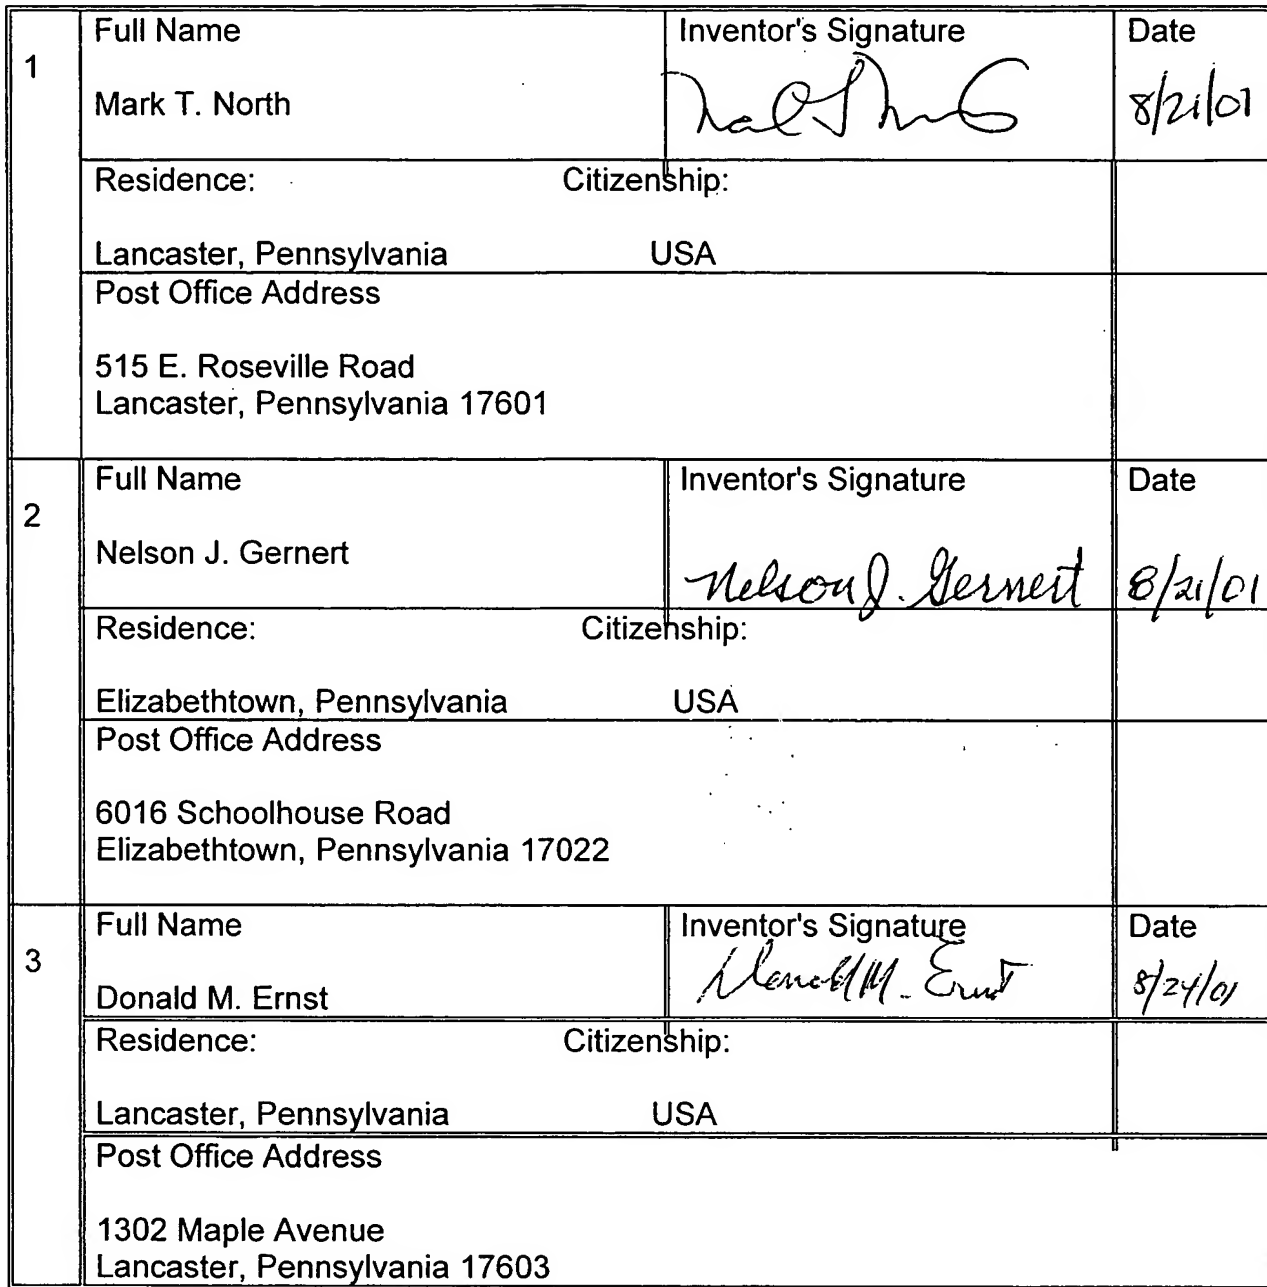 1
Full Name Inventor's Signature Date
Mark T. North 8/21/01
Residence: Citizenship:
Lancaster, Pennsylvania USA
Post Office Address
515 E. Roseville Road
Lancaster, Pennsylvania 17601
2
Full Name Inventor's Signature Date
Nelson J. Gernert Nelson J. Gernert 8/21/01
Residence: Citizenship:
Elizabethtown, Pennsylvania USA
Post Office Address
6016 Schoolhouse Road
Elizabethtown, Pennsylvania 17022
3
Full Name Inventor's Signature Date
Donald M. Ernst Donald M. Ernst 8/24/01
Residence: Citizenship:
Lancaster, Pennsylvania USA
Post Office Address
1302 Maple Avenue
Lancaster, Pennsylvania 17603